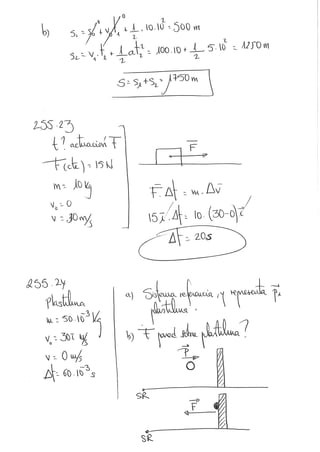 b) S₁ = S₀ + v₀t₁ + 1/2 · 10 · 10² = 500 m
S₂ = v₁ · t₂ + 1/2 a t₂² = 100 · 10 + 1/2 5 · 10² = 1250 m
S = S₁ + S₂ = 1750 m
255.23
t? actuación F
F(cte) = 15 N
m = 10 kg
v₀ = 0
v = 30 m/s
F
F · Δt = m · Δv
15 i · Δt = 10 · (30-0) i
Δt = 20s
255.24
Plastilina
m = 50 · 10⁻³ kg
v₀ = 30 i m/s
v = 0 m/s
Δt = 60 · 10⁻³ s
a) Sistema referencia, y representa p
plastilina.
b) F pared sobre plastilina?
P
SR
F
SR